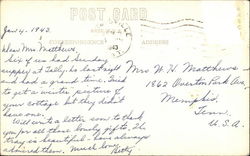 POST CARD
Jan 4, 1942
Dear Mrs Matthews,
Six of us had Sunday
supper at last night
and had a grand time. Tried
to get a winter picture of
your cottage but they didn't
have one.
Will write a letter soon to thank
you for all those lovely gifts. The
tray is beautiful. Have always
desired them. Much love,
Betty
CORRESPONDENCE
ADDRESS
Mrs W. H. Matthews
1862 Overton Park Ave,
Memphis,
Tenn.
U.S.A.